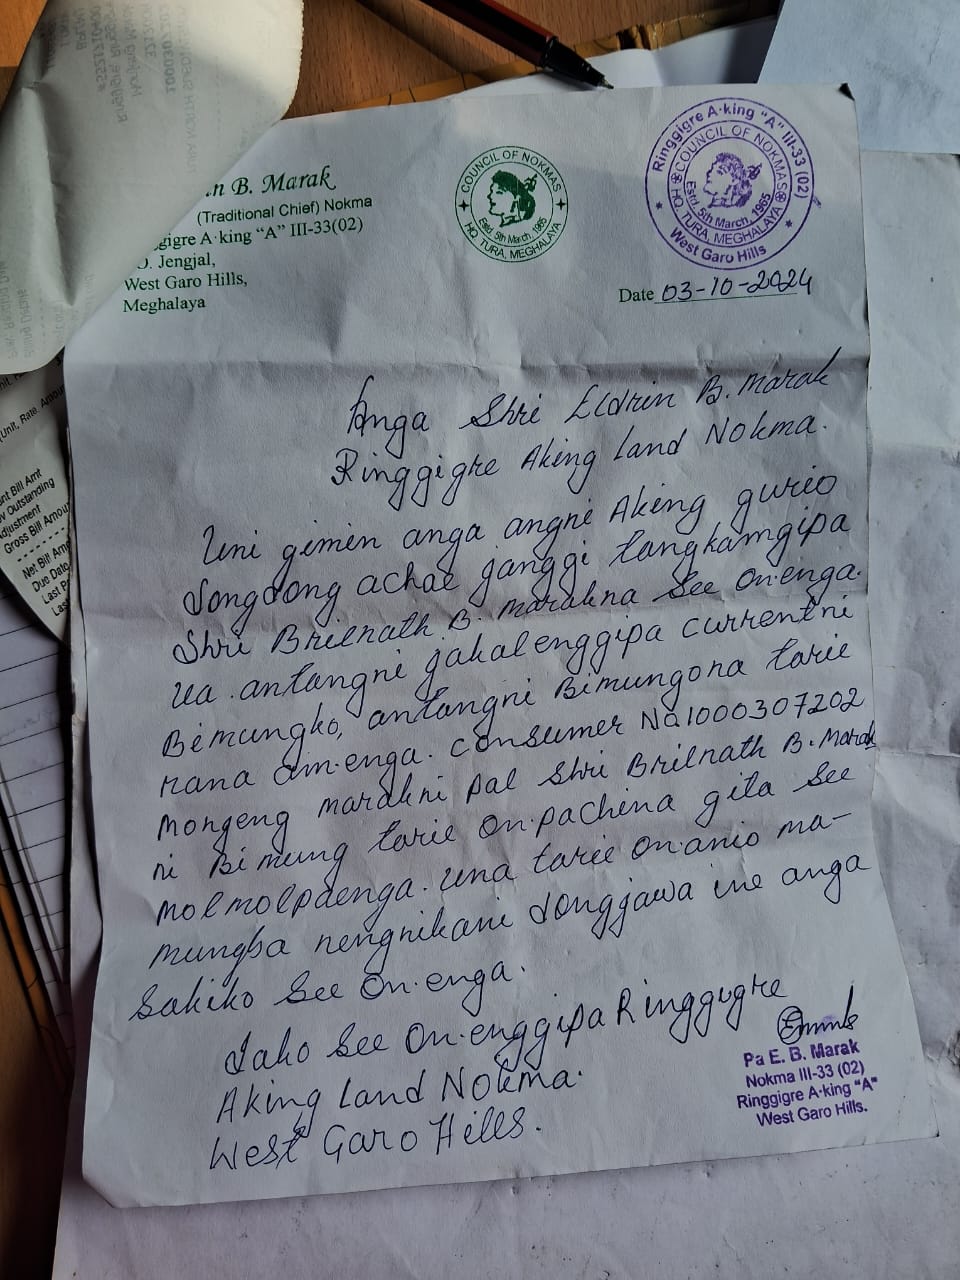 n B. Marak
(Traditional Chief) Nokma
gigre A·king "A" III-33(02)
O. Jengjal,
West Garo Hills,
Meghalaya
COUNCIL OF NOKMAS
Estd. 5th March, 1965
HQ. TURA, MEGHALAYA
Ringgigre A·king "A" III-33 (02)
COUNCIL OF NOKMAS
Estd. 5th March, 1965
HQ. TURA, MEGHALAYA
West Garo Hills
Date 03-10-2024
Anga Shri Eldrin B. Marak
Ringgigre Aking Land Nokma.
Uni gimin anga angni Aking gurio
dongdong achae janggi tangkamgipa
Shri Brilnath B. Marakna See on·enga.
Ua antangni jakalenggipa currentni
Bimungko, antangni Bimungona tarie
rana am·enga. Consumer No 1000307202
Mongeng marakni pal Shri Brilnath B. Marak
ni Bimung tarie on·pachina gita See
molmolpaenga. Una tarie on·anio ma-
mungba nengnikani dongjawa ine anga
Sakiko See on·enga.
Iako See on·enggipa Ringgigre
Aking Land Nokma.
West Garo Hills.
Pa E. B. Marak
Nokma III-33 (02)
Ringgigre A·king "A"
West Garo Hills.
nt Bill Amt
v Outstanding
Adjustment
Gross Bill Amou
Net Bill Am
Due Date
Last P
Las
(Unit, Rate, Amou